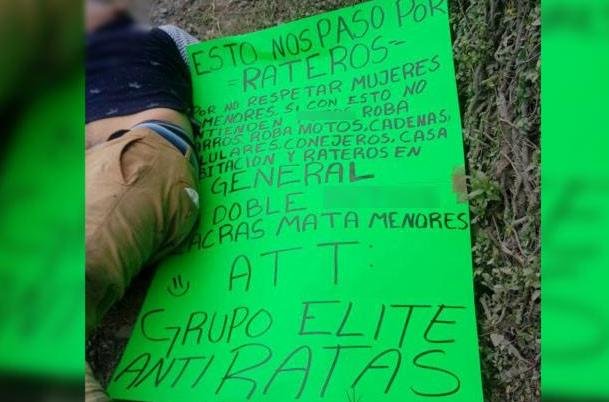 ESTO NOS PASO POR
=RATEROS=
POR NO RESPETAR MUJERES
MENORES, SI CON ESTO NO
NTIENDEN ROBA
ARROS, ROBA MOTOS, CADENAS,
LULARES, CONEJEROS, CASA
BITACION Y RATEROS EN
GENERAL
DOBLE
ACRAS MATA MENORES
ATT:
GRUPO ELITE
ANTI RATAS